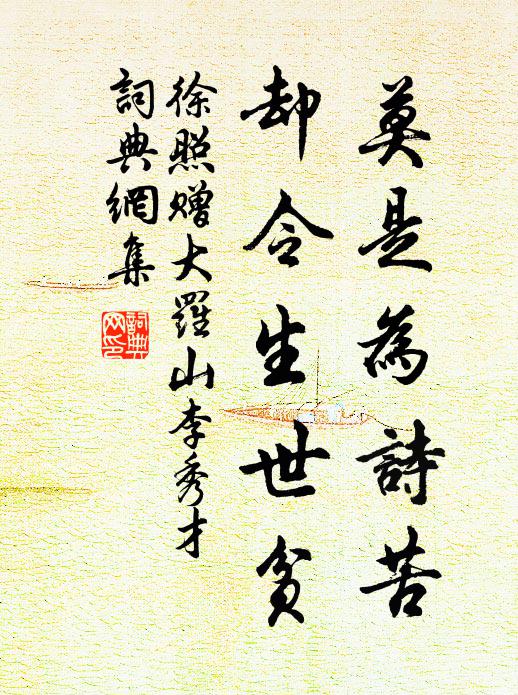 莫是為詩苦
却令生世貧
徐照贈大羅山李秀才
詞典網集
詞典网印